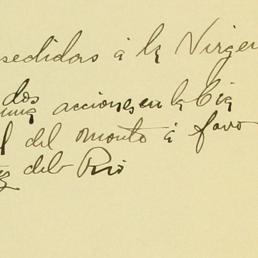 sedidors á la Virgen
dos
una acciones en la Cia
l del monto á favo
ez del Rio